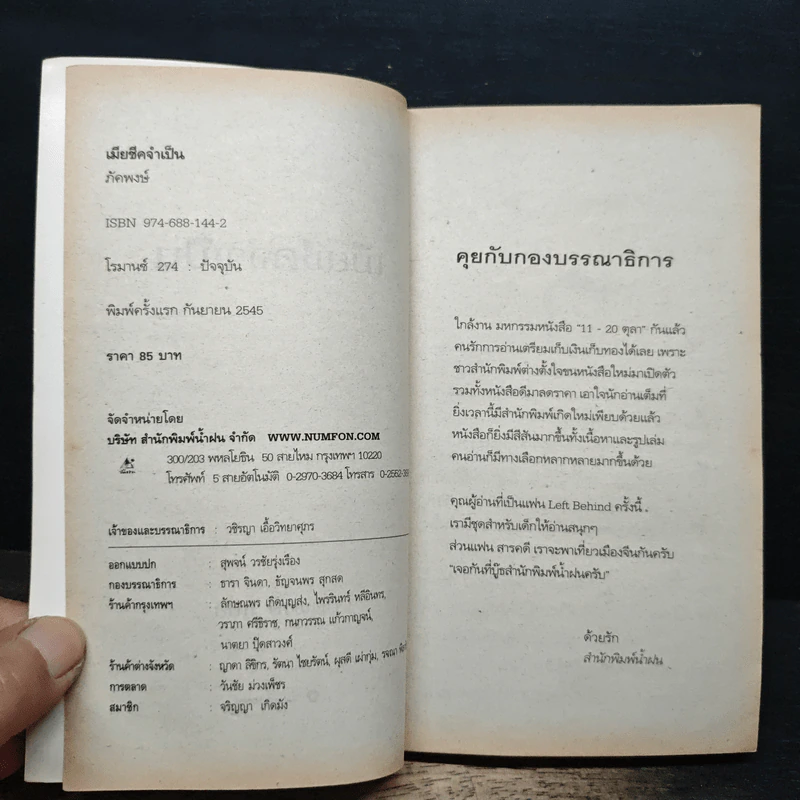 เมียชีคจำเป็น
ภัคพงษ์
ISBN 974-688-144-2
โรมานซ์ 274 : ปัจจุบัน
พิมพ์ครั้งแรก กันยายน 2545
ราคา 85 บาท
จัดจำหน่ายโดย
บริษัท สำนักพิมพ์น้ำฝน จำกัด WWW.NUMFON.COM
300/203 พหลโยธิน 50 สายไหม กรุงเทพฯ 10220
โทรศัพท์ 5 สายอัตโนมัติ 0-2970-3684 โทรสาร
เจ้าของและบรรณาธิการ : วชิรญา เอื้อวิทยาศุภร
ออกแบบปก : สุพจน์ วรชัยรุ่งเรือง
กองบรรณาธิการ : ธารา จินดา, ธัญจนพร สุกสด
ร้านค้ากรุงเทพฯ : ลักษณพร เกิดบุญส่ง, ไพรรินทร์ หลีอินทร,
วราภา ศรีธิราช, กนกวรรณ แก้วกาญจน์,
นาตยา ปุ๊ดสาวงศ์
ร้านค้าต่างจังหวัด : ญาดา ลิขิกร, รัตนา ไชยรัตน์, ผุสดี เผ่ากุ่ม,
การตลาด : วันชัย ม่วงเพ็ชร
สมาชิก : จริญญา เกิดมัง
คุยกับกองบรรณาธิการ
ใกล้งาน มหกรรมหนังสือ "11 - 20 ตุลา" กันแล้ว
คนรักการอ่านเตรียมเก็บเงินเก็บทองได้เลย เพราะ
ชาวสำนักพิมพ์ต่างตั้งใจขนหนังสือใหม่มาเปิดตัว
รวมทั้งหนังสือดีมาลดราคา เอาใจนักอ่านเต็มที่
ยิ่งเวลานี้มีสำนักพิมพ์เกิดใหม่เพียบด้วยแล้ว
หนังสือก็ยิ่งมีสีสันมากขึ้นทั้งเนื้อหาและรูปเล่ม
คนอ่านก็มีทางเลือกหลากหลายมากขึ้นด้วย
คุณผู้อ่านที่เป็นแฟน Left Behind ครั้งนี้
เรามีชุดสำหรับเด็กให้อ่านสนุกๆ
ส่วนแฟน สารคดี เราจะพาเที่ยวเมืองจีนกันครับ
"เจอกันที่บู๊ธสำนักพิมพ์น้ำฝนครับ"
ด้วยรัก
สำนักพิมพ์น้ำฝน